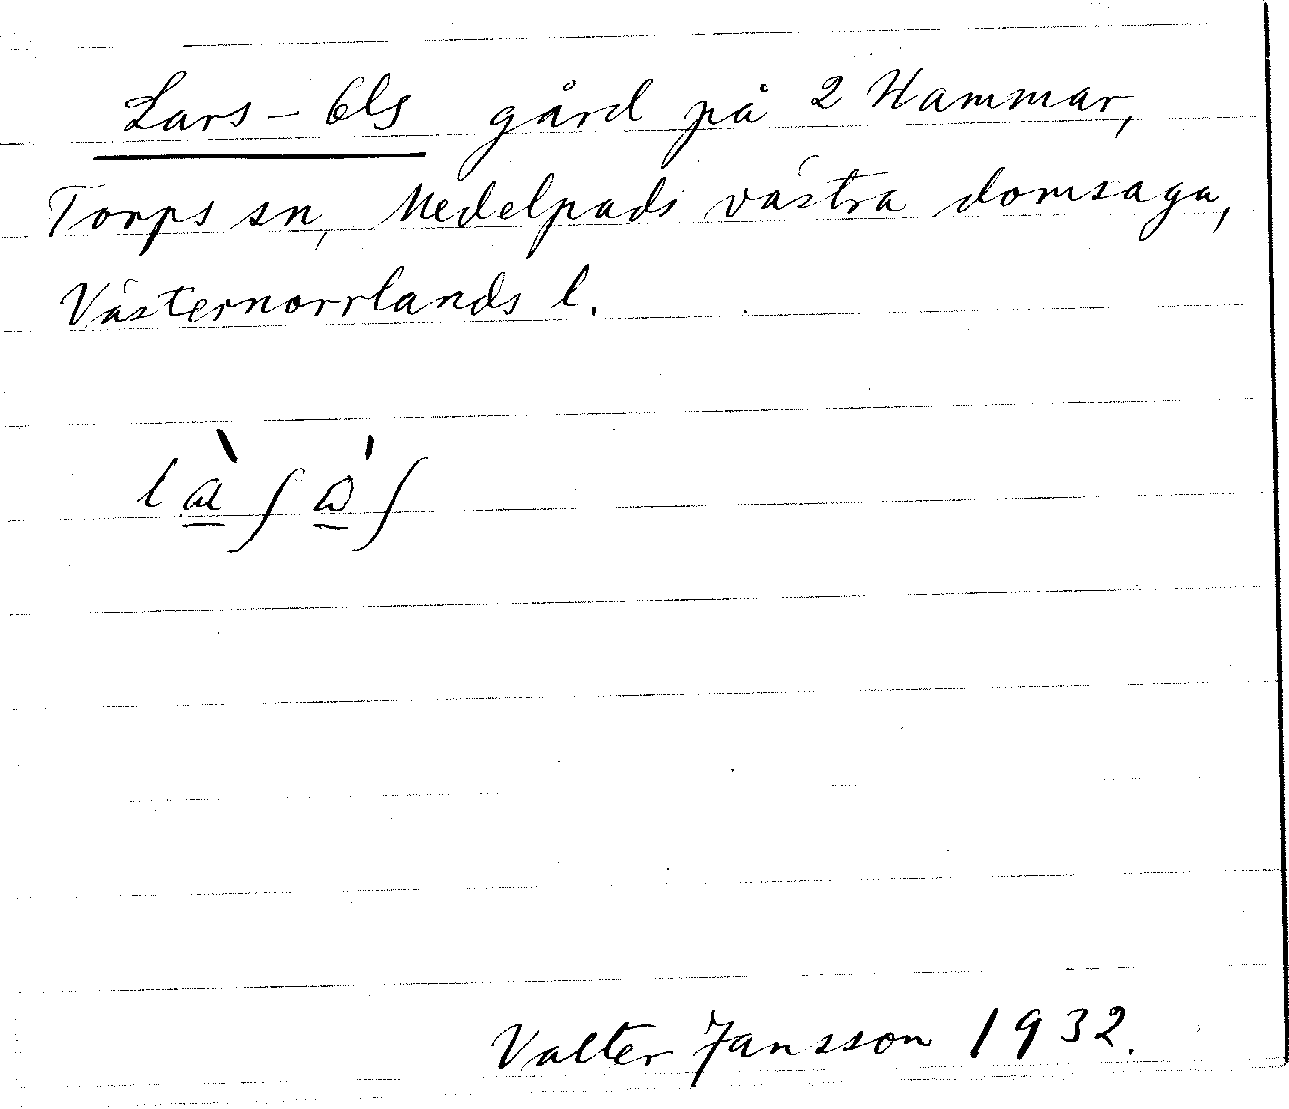 Lars-Ols gård på 2 Hammar,
Torps sn, Medelpads västra domsaga,
Västernorrlands l.
Valter Jansson 1932.